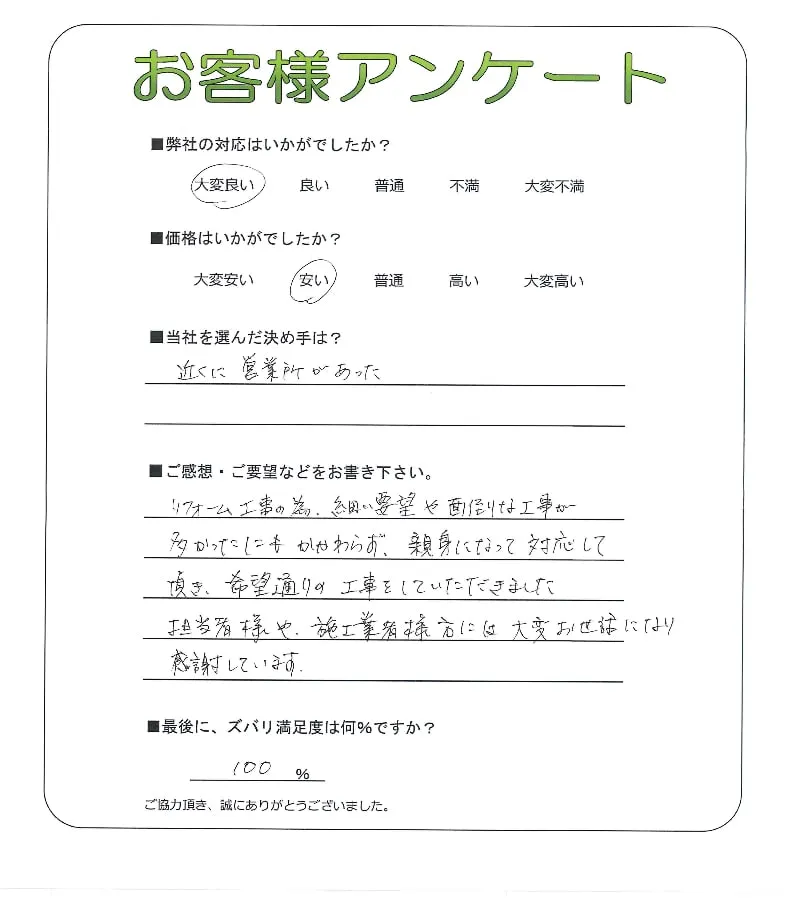 お客様アンケート
■弊社の対応はいかがでしたか？
大変良い 良い 普通 不満 大変不満
■価格はいかがでしたか？
大変安い 安い 普通 高い 大変高い
■当社を選んだ決め手は？
近くに営業所があった
■ご感想・ご要望などをお書き下さい。
リフォーム工事の為、細い要望や面倒な工事が
多かったにもかかわらず、親身になって対応して
頂き、希望通りの工事をしていただきました
担当者様や、施工業者様方には大変お世話になり
感謝しています。
■最後に、ズバリ満足度は何％ですか？
100 ％
ご協力頂き、誠にありがとうございました。